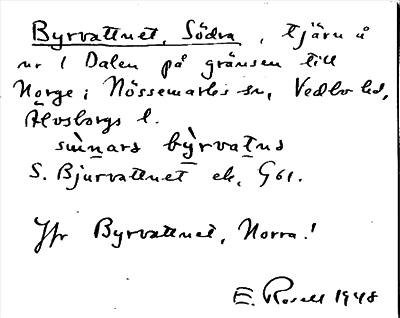 Byrvattnet, Södra, tjärn å
nr 1 Dalen på gränsen till
Norge i Nössemarks sn, Vedbo hd,
Älvsborgs l.
sùnnars by̆rvatnə
S. Bjurvattnet ek. G61.
Jfr Byrvattnet, Norra!
E. Rosell 1948